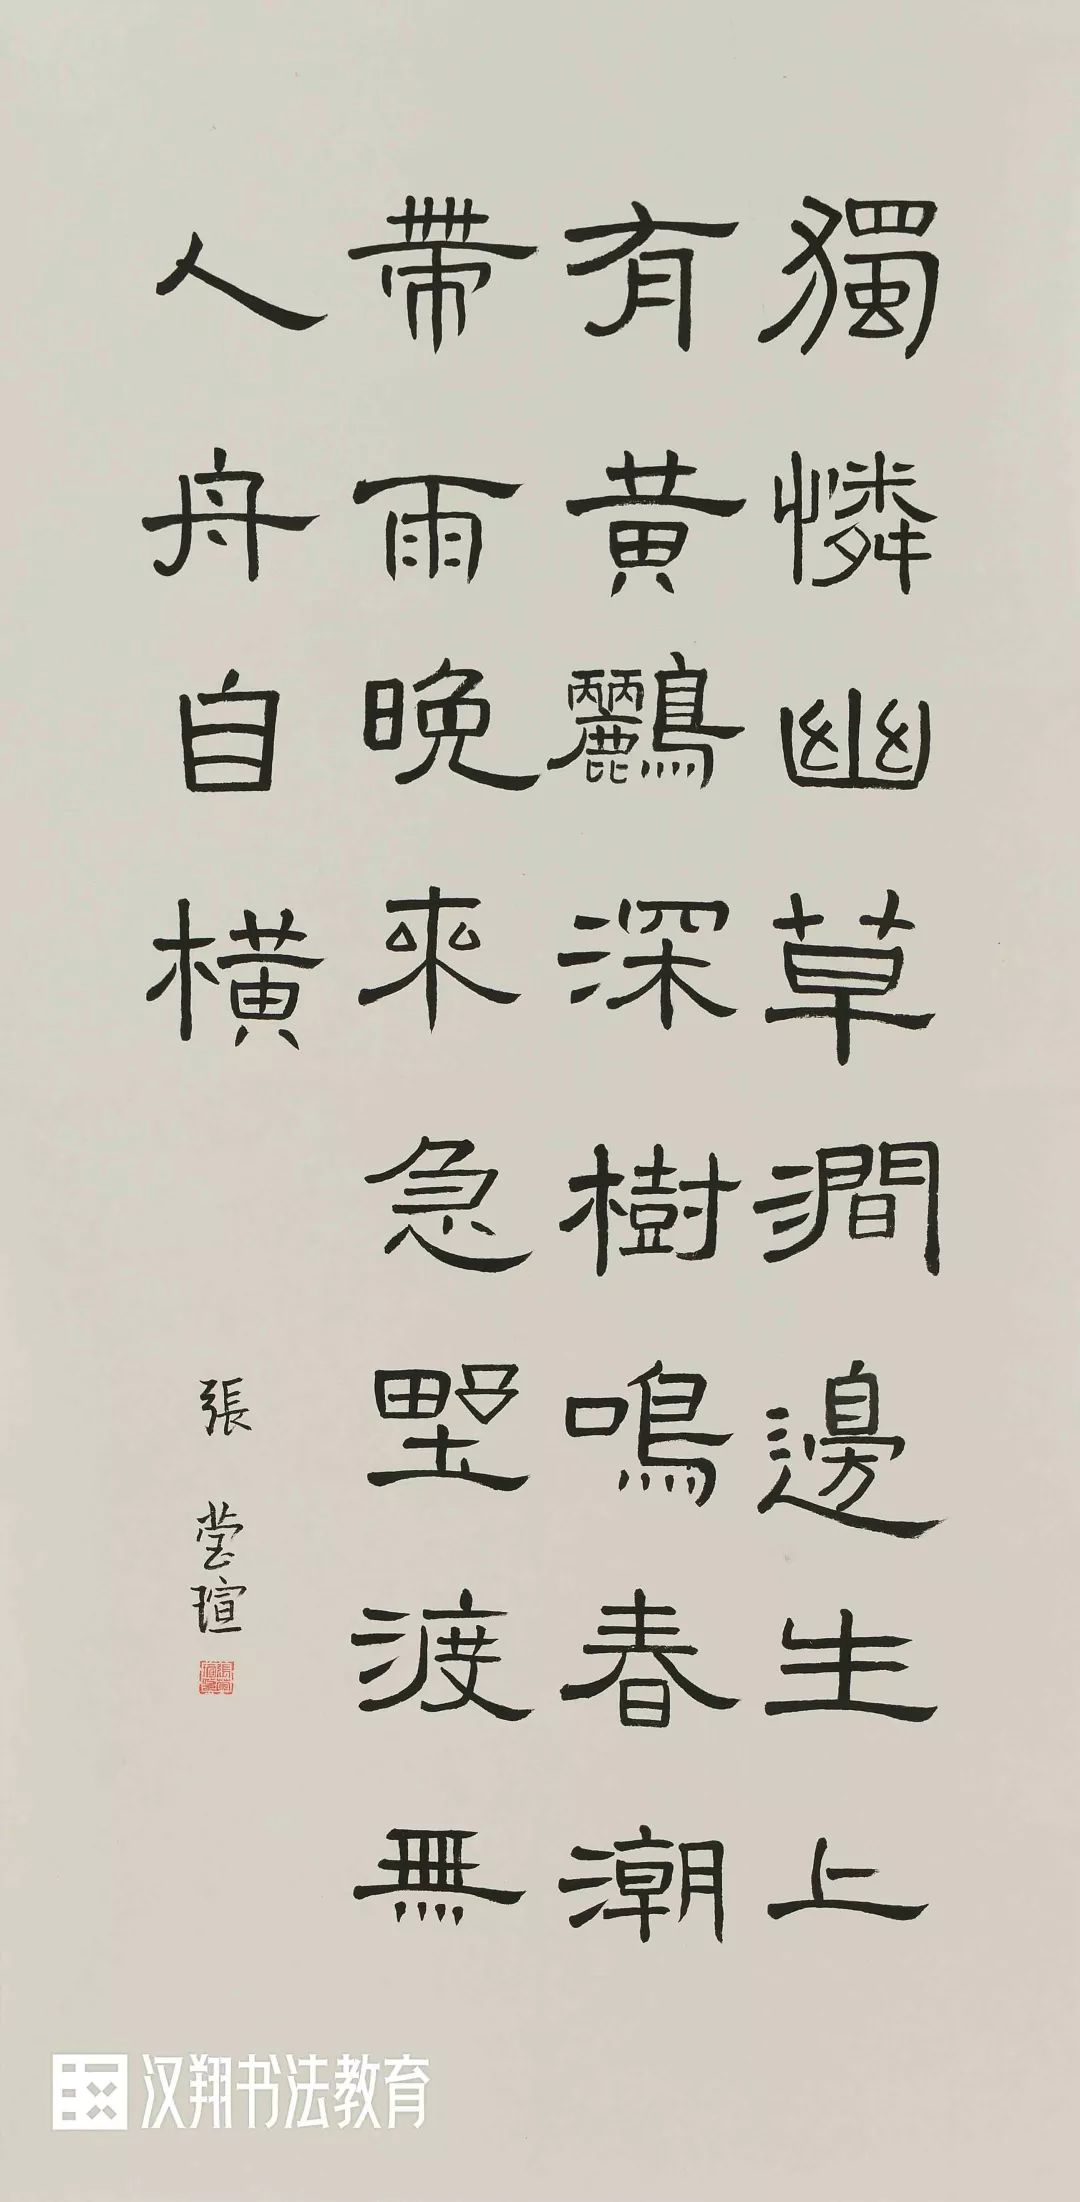 獨憐幽草澗邊生上
有黃鸝深樹鳴春潮
帶雨晚來急野渡無
人舟自橫
張莹瑄
汉翔书法教育